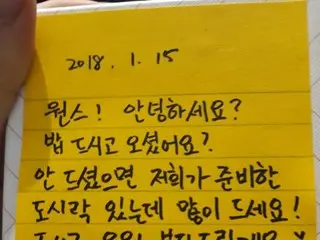 2018. 1. 15
원스! 안녕하세요?
밥 드시고 오셨어요?
안 드셨으면 저희가 준비한
도시락 있는데 많이 드세요!